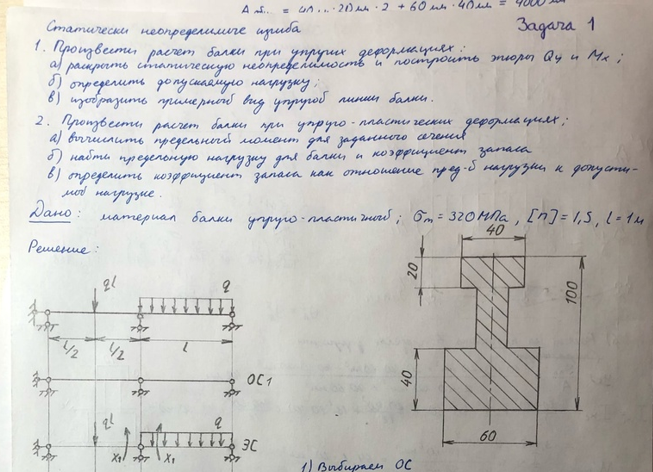 = 20мм · 2 + 60мм · 40мм = 4000мм
Задача 1
Статически неопределимые изгиба
1. Произвести расчет балки при упругих деформациях:
а) раскрыть статическую неопределимость и построить эпюры Qy и Mx;
б) определить допускаемую нагрузку;
в) изобразить примерный вид упругой линии балки.
2. Произвести расчет балки при упруго-пластических деформациях;
а) вычислить предельный момент для заданного сечения
б) найти предельную нагрузку для балки и коэффициент запаса
в) определить коэффициент запаса как отношение пред-й нагрузки к допусти-
мой нагрузке.
Дано: материал балки упруго-пластичный; σт = 320 МПа, [n] = 1,5, l = 1м
Решение:
40
20
100
40
60
ql
q
l/2
l/2
l
ОС1
ql
q
ЭС
X1
X1
1) Выбираем ОС